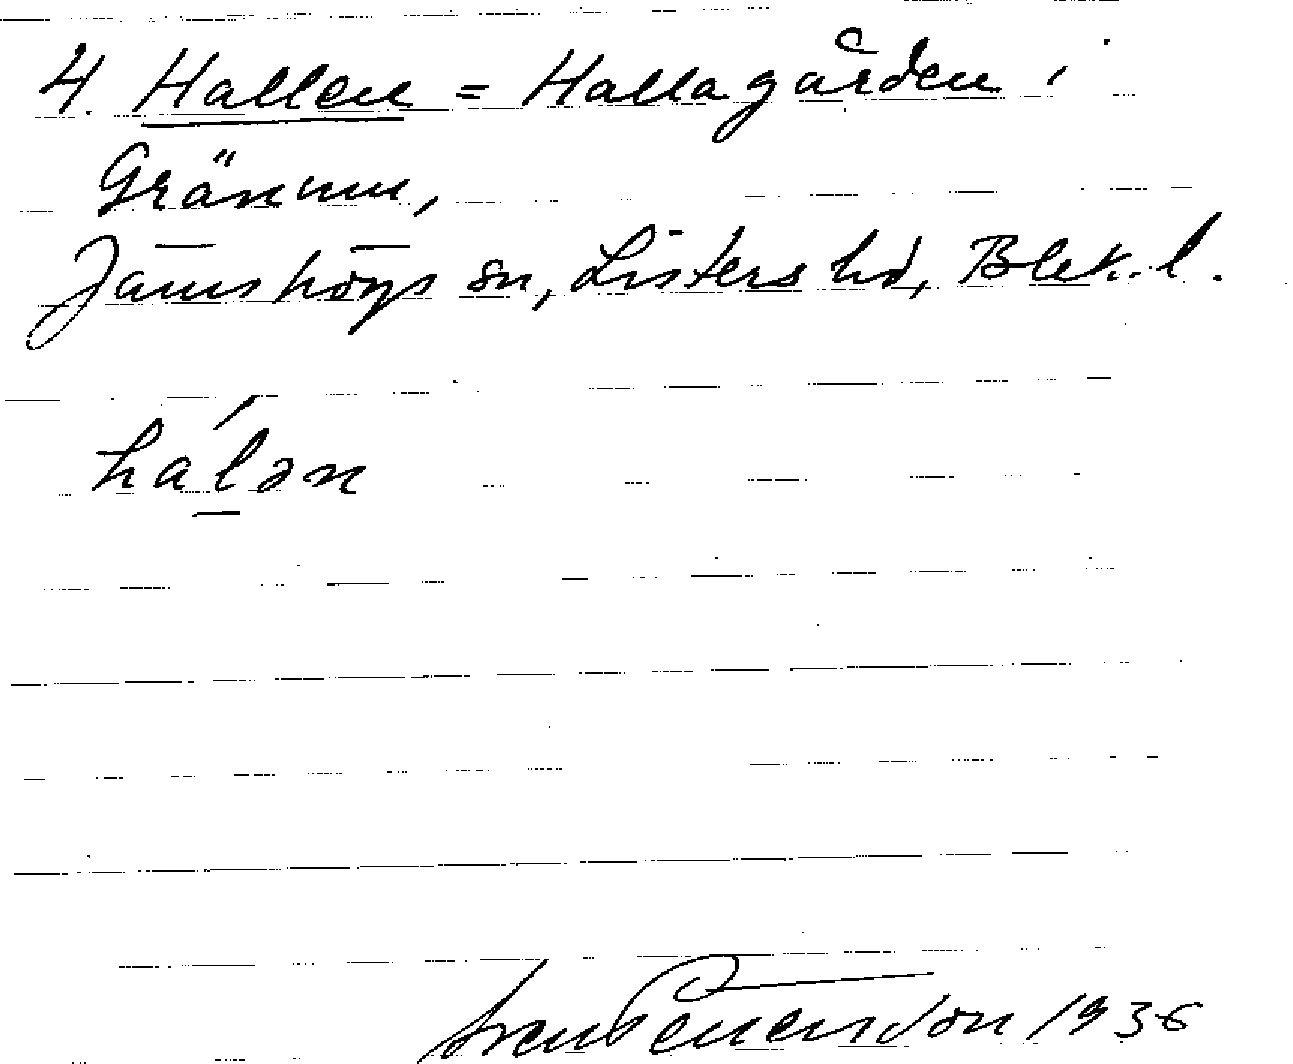 4. Hallen = Hallagården i
Gränum,
Jämshögs sn, Listers hd, Blek. l.
hálən
Sven Benson 1936